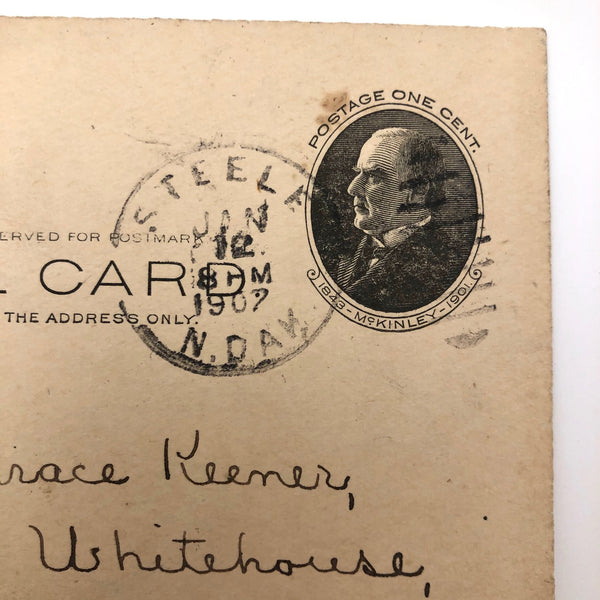 POSTAGE ONE CENT.
1843-McKINLEY-1901.
STEELE
JAN
12
8 PM
1907
N. DAK.
ERVED FOR POSTMARK
L CARD
THE ADDRESS ONLY.
race Keener,
Whitehouse,